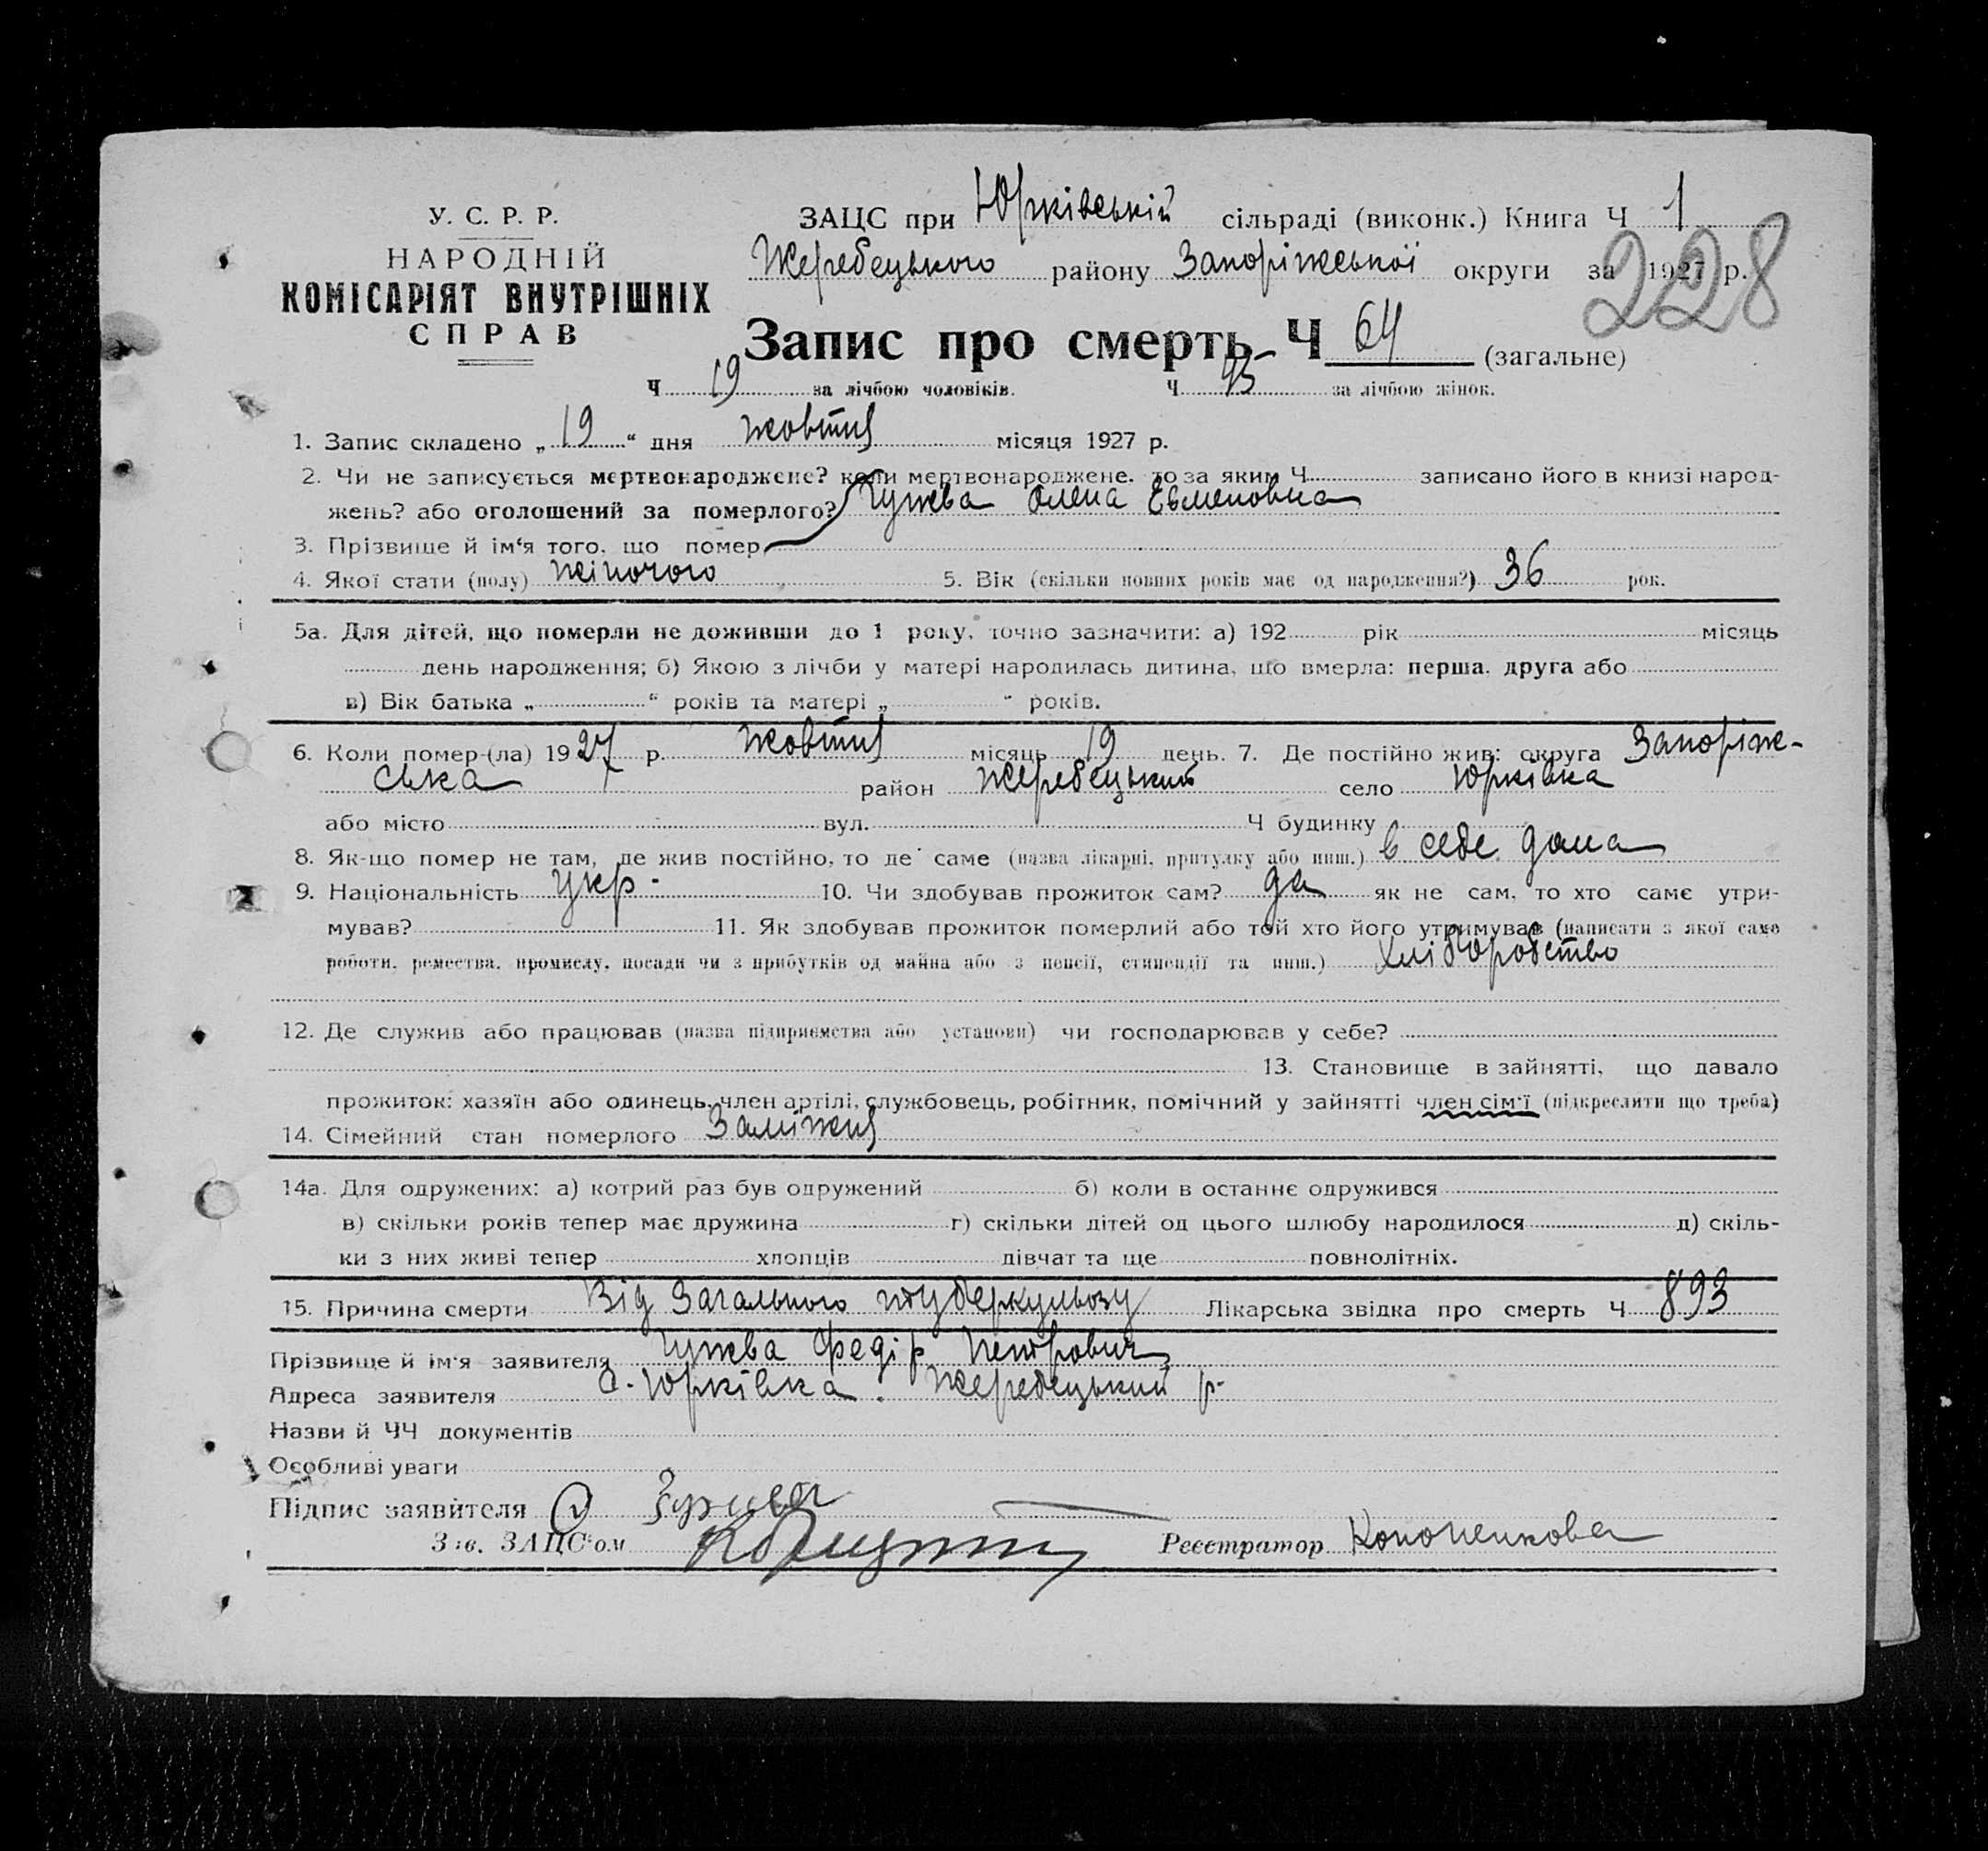 У. С. Р. Р.
НАРОДНІЙ
КОМІСАРІЯТ ВНУТРІШНІХ
СПРАВ
ЗАЦС при Юрківській сільраді (виконк.) Книга Ч 1
Жеребецького району Запоріжської округи за 1927 р.
228
Запис про смерть Ч 64 (загальне)
Ч 19 за лічбою чоловіків. Ч 45 за лічбою жінок.
1. Запис складено „19“ дня жовтня місяця 1927 р.
2. Чи не записується мертвонароджене? коли мертвонароджене, то за яким Ч записано його в книзі народ-
жень? або оголошений за померлого? Гужва Олена Евменовна
3. Прізвище й ім‘я того, що помер
4. Якої стати (полу) жіночого 5. Вік (скільки повних років має од народження?) 36 рок.
5а. Для дітей, що померли не доживши до 1 року, точно зазначити: а) 192 рік місяць
день народження; б) Якою з лічби у матері народилась дитина, що вмерла: перша, друга або
в) Вік батька „ “ років та матері „ “ років.
6. Коли помер-(ла) 1927 р. жовтня місяць 19 день. 7. Де постійно жив: округа Запоріж-
ська район Жеребецький село Юрківка
або місто вул. Ч будинку
8. Як-що помер не там, де жив постійно, то де саме (назва лікарні, притулку або инш.) в себе дома
9. Національність Укр. 10. Чи здобував прожиток сам? да як не сам, то хто саме утри-
мував? 11. Як здобував прожиток померлий або той хто його утримував (написати з якої саме
роботи, ремества, промислу, посади чи з прибутків од майна або з пенсії, стипендії та инш.) Хліборобство
12. Де служив або працював (назва підприємства або установи) чи господарював у себе?
13. Становище в зайнятті, що давало
прожиток: хазяїн або одинець, член артілі, службовець, робітник, помічний у зайнятті член сім‘ї (підкреслити що треба)
14. Сімейний стан померлого Заміжня
14а. Для одружених: а) котрий раз був одружений б) коли в останнє одружився
в) скільки років тепер має дружина г) скільки дітей од цього шлюбу народилося д) скіль-
ки з них живі тепер хлопців дівчат та ще повнолітніх.
15. Причина смерти Від Загального туберкульозу Лікарська звідка про смерть Ч 893
Прізвище й ім‘я заявителя Гужва Федір Петрович
Адреса заявителя с. Юрківка. Жеребецький р.
Назви й ЧЧ документів
Особливі уваги
Підпис заявителя Гужва
Зав. ЗАЦС‘ом
Реєстратор Кононенкова